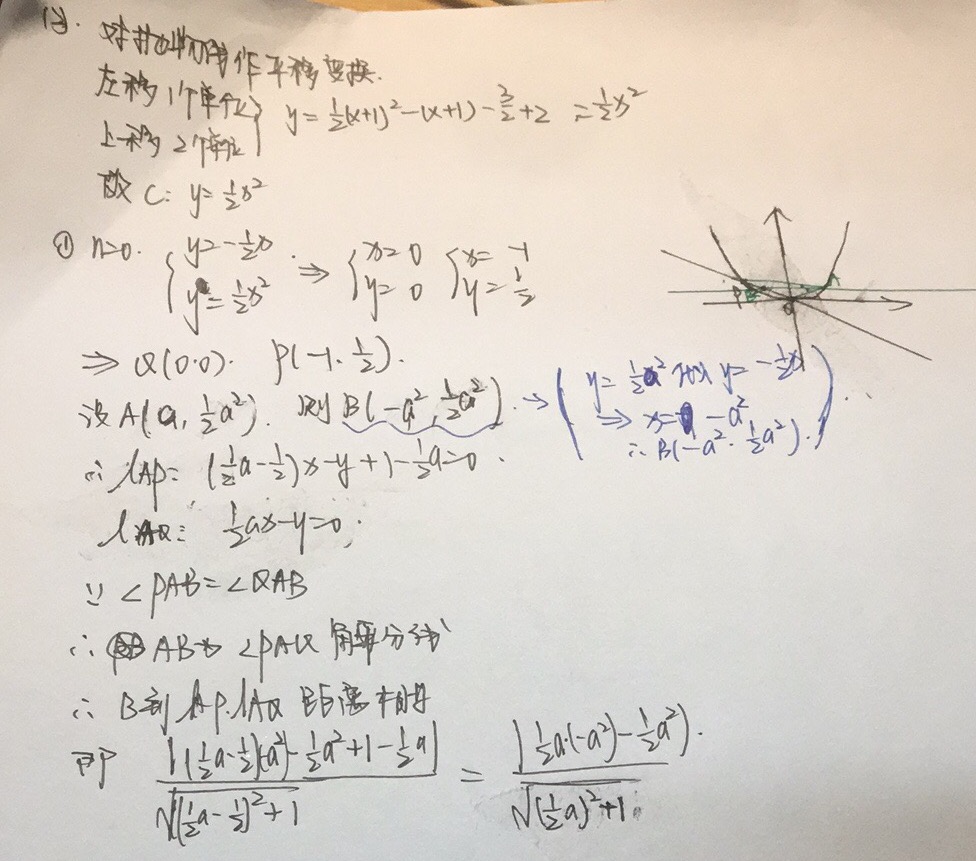 (3). 对抛物线作平移变换.
左移1个单位
上移2个单位 } y=½(x+1)²-(x+1)-3/2+2 =½x²
故 C: y=½x²
① n=0. { y=-½x  y=½x² ⇒ { x=0  y=0 { x=-1  y=½
⇒ Q(0.0). P(-1.½).
设A(a,½a²). 则B(-a²,½a²). → ( y=½a² 代入 y=-½x ⇒ x=-a² ∴B(-a².½a²). )
∴ lAP: (½a-½)x-y+1-½a=0.
lAQ: ½ax-y=0.
∵ ∠PAB=∠QAB
∴ AB为∠PAQ角平分线
∴ B到lAP.lAQ距离相等
即 |(½a-½)(-a²)-½a²+1-½a| / √((½a-½)²+1) = |½a·(-a²)-½a²| / √((½a)²+1).
P